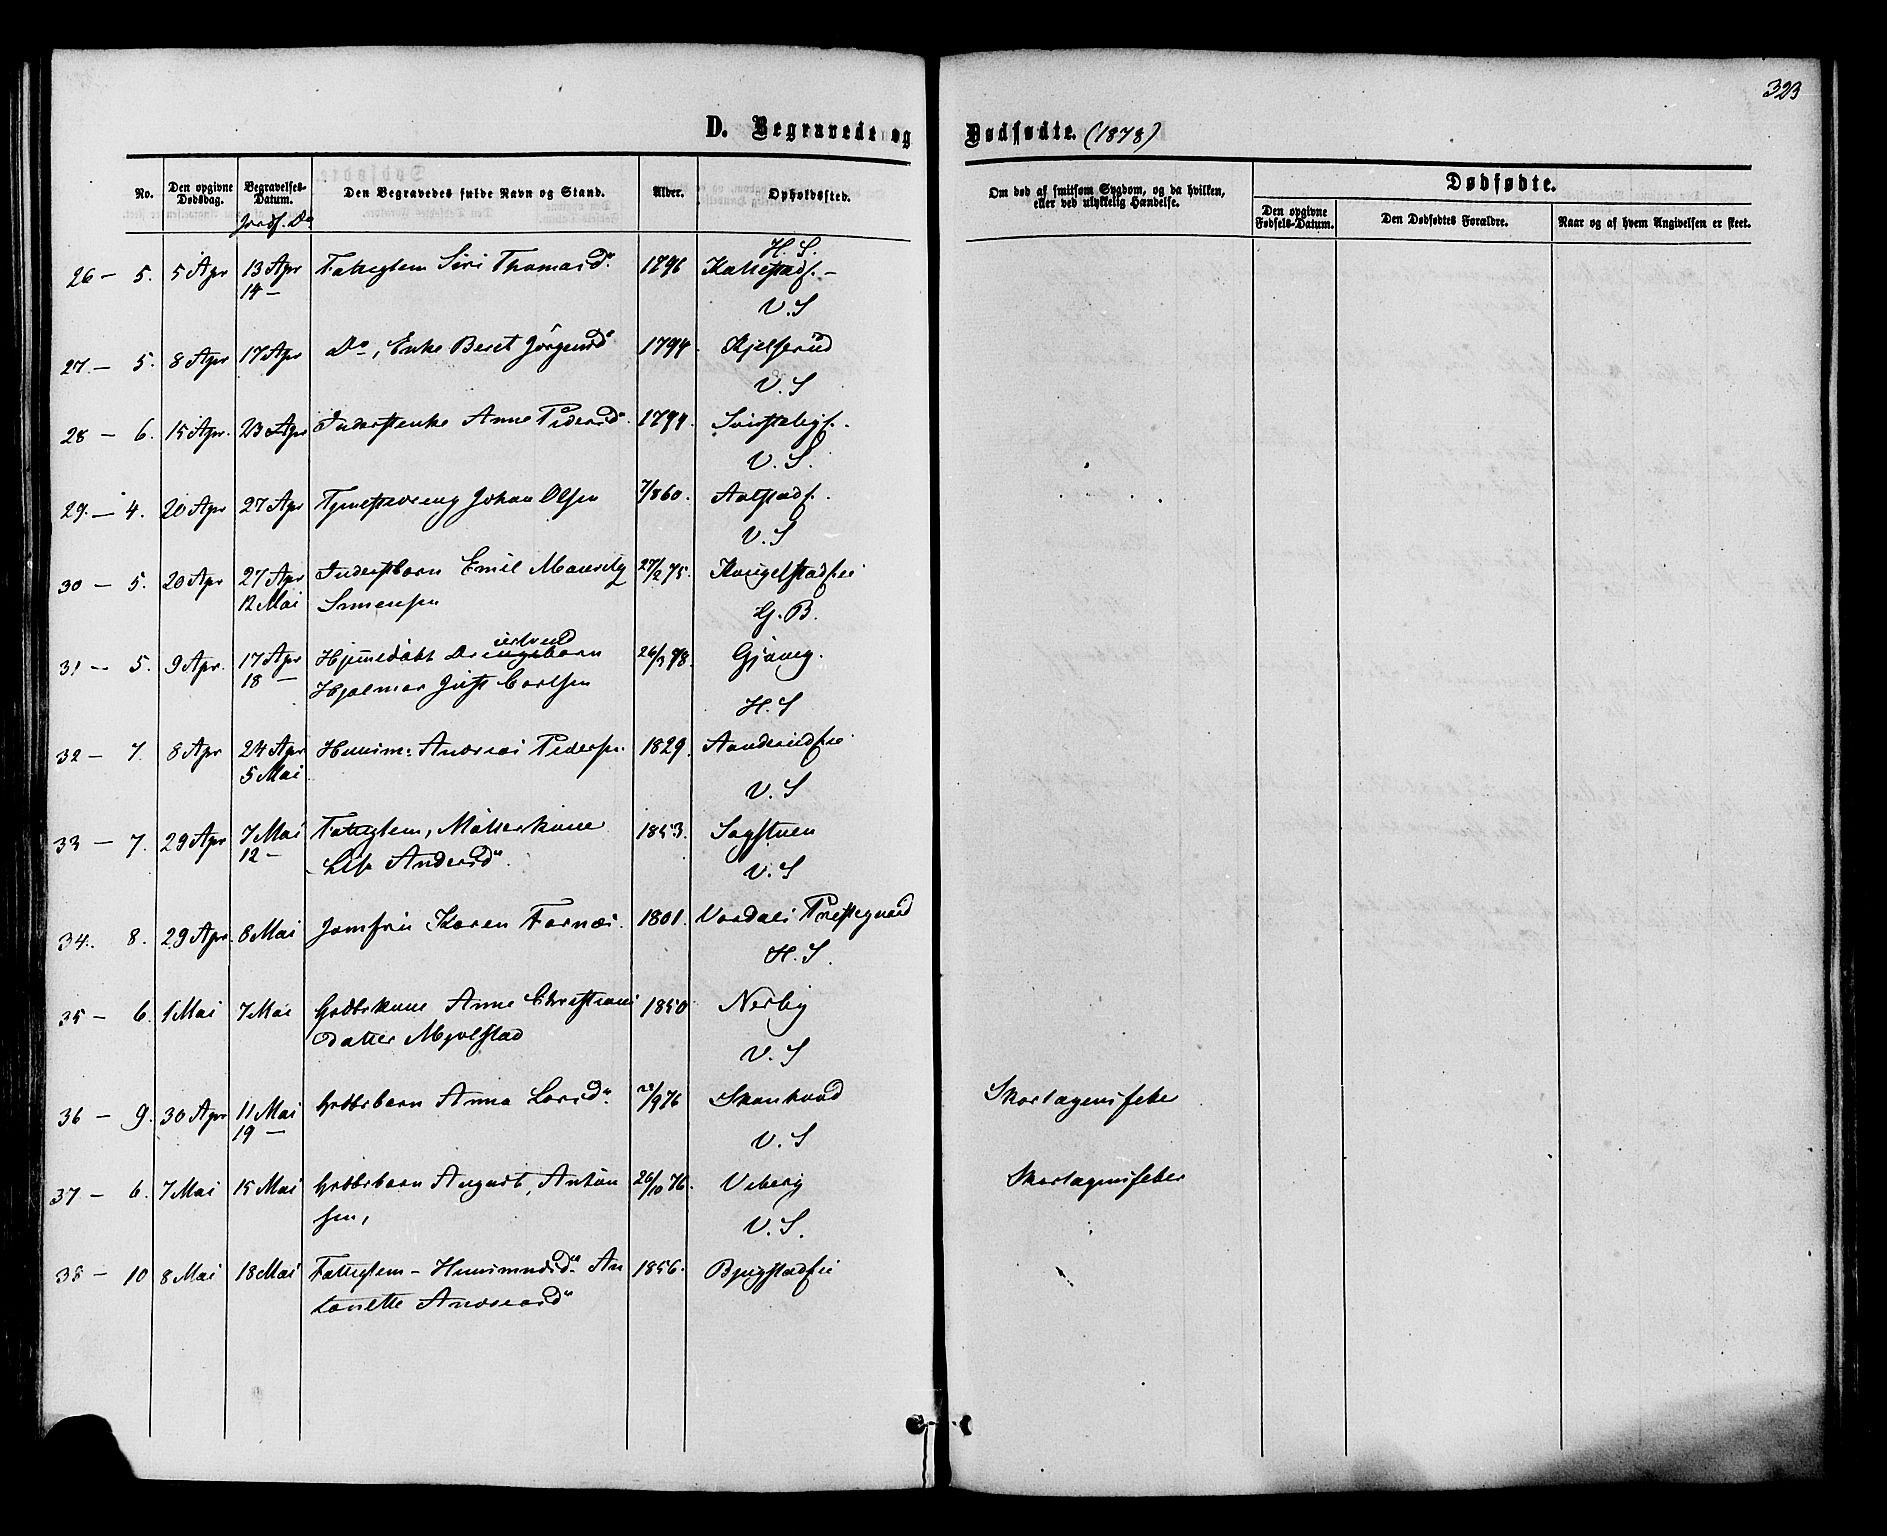 323
D. Begravede og Dødfødte. (1878)
No.
Den opgivne Dødsdag.
Begravelses-Datum.
Jordf. Do
Den Begravedes fulde Navn og Stand.
Alder.
Opholdssted.
Om død af smitsom Sygdom, og da hvilken, eller ved ulykkelig Hændelse.
Dødfødte.
Den opgivne Fødsels-Datum.
Den Dødfødtes Forældre.
Naar og af hvem Angivelsen er skeet.
H. S.
26 – 5. 5 Apr 13 Apr Fattiglem Siri Thomasd. 1796
14 –
V. S
27. – 5. 8 Apr 17 Apr Do, Enke Beret Jörgensd 1794 Kjelserud
V. S
28 – 6. 15 Apr. 23 Apr Inderstenke Anne Pedersd. 1794.
V. S.
29. – 4. 20 Apr 27 Apr Johan Olsen 7/8 60. Aalstadf.
V. S
30 – 5. 20 Apr 27 Apr Inderstbarn Emil Mauritz 27/2 75.
12 Mai Simensen
G. B.
31 – 5. 9 Apr. 17 Apr Hjemedöbt 26/1 78. Gjøvig.
18 – Hjalmar Just Carlsen
H. S
32 – 7. 8 Apr 24 Apr Huusm. Andreas Pedersen. 1829.
5 Mai
V. S
33 – 7. 29 Apr 7 Mai Fattiglem, Möllerkone 1853. Sagstuen
12 – Lise Andersd.
V. S
34. 8. 29 Apr. 8 Mai Jomfru Karen Fornæs. 1801. Vardals Prestegaard
H. S.
35 – 6. 1 Mai 7 Mai Grdbrkone Anne Christians 1850 Nerby
datter Mjølstad
V. S
36 – 9. 30 Apr 11 Mai Grdbrbarn Anna Larsd. /9 76 Skonhovd Skarlagensfeber
19 –
V. S
37 – 6. 7 Mai 15 Mai Grdbrbarn August Anton 26/10 76. Viberg Skarlagensfeber
sen,
V. S.
38 – 10 8 Mai 18 Mai Fattiglem – Huusmandsd. An 1856. Bjugstadeie
tonette Andreasd